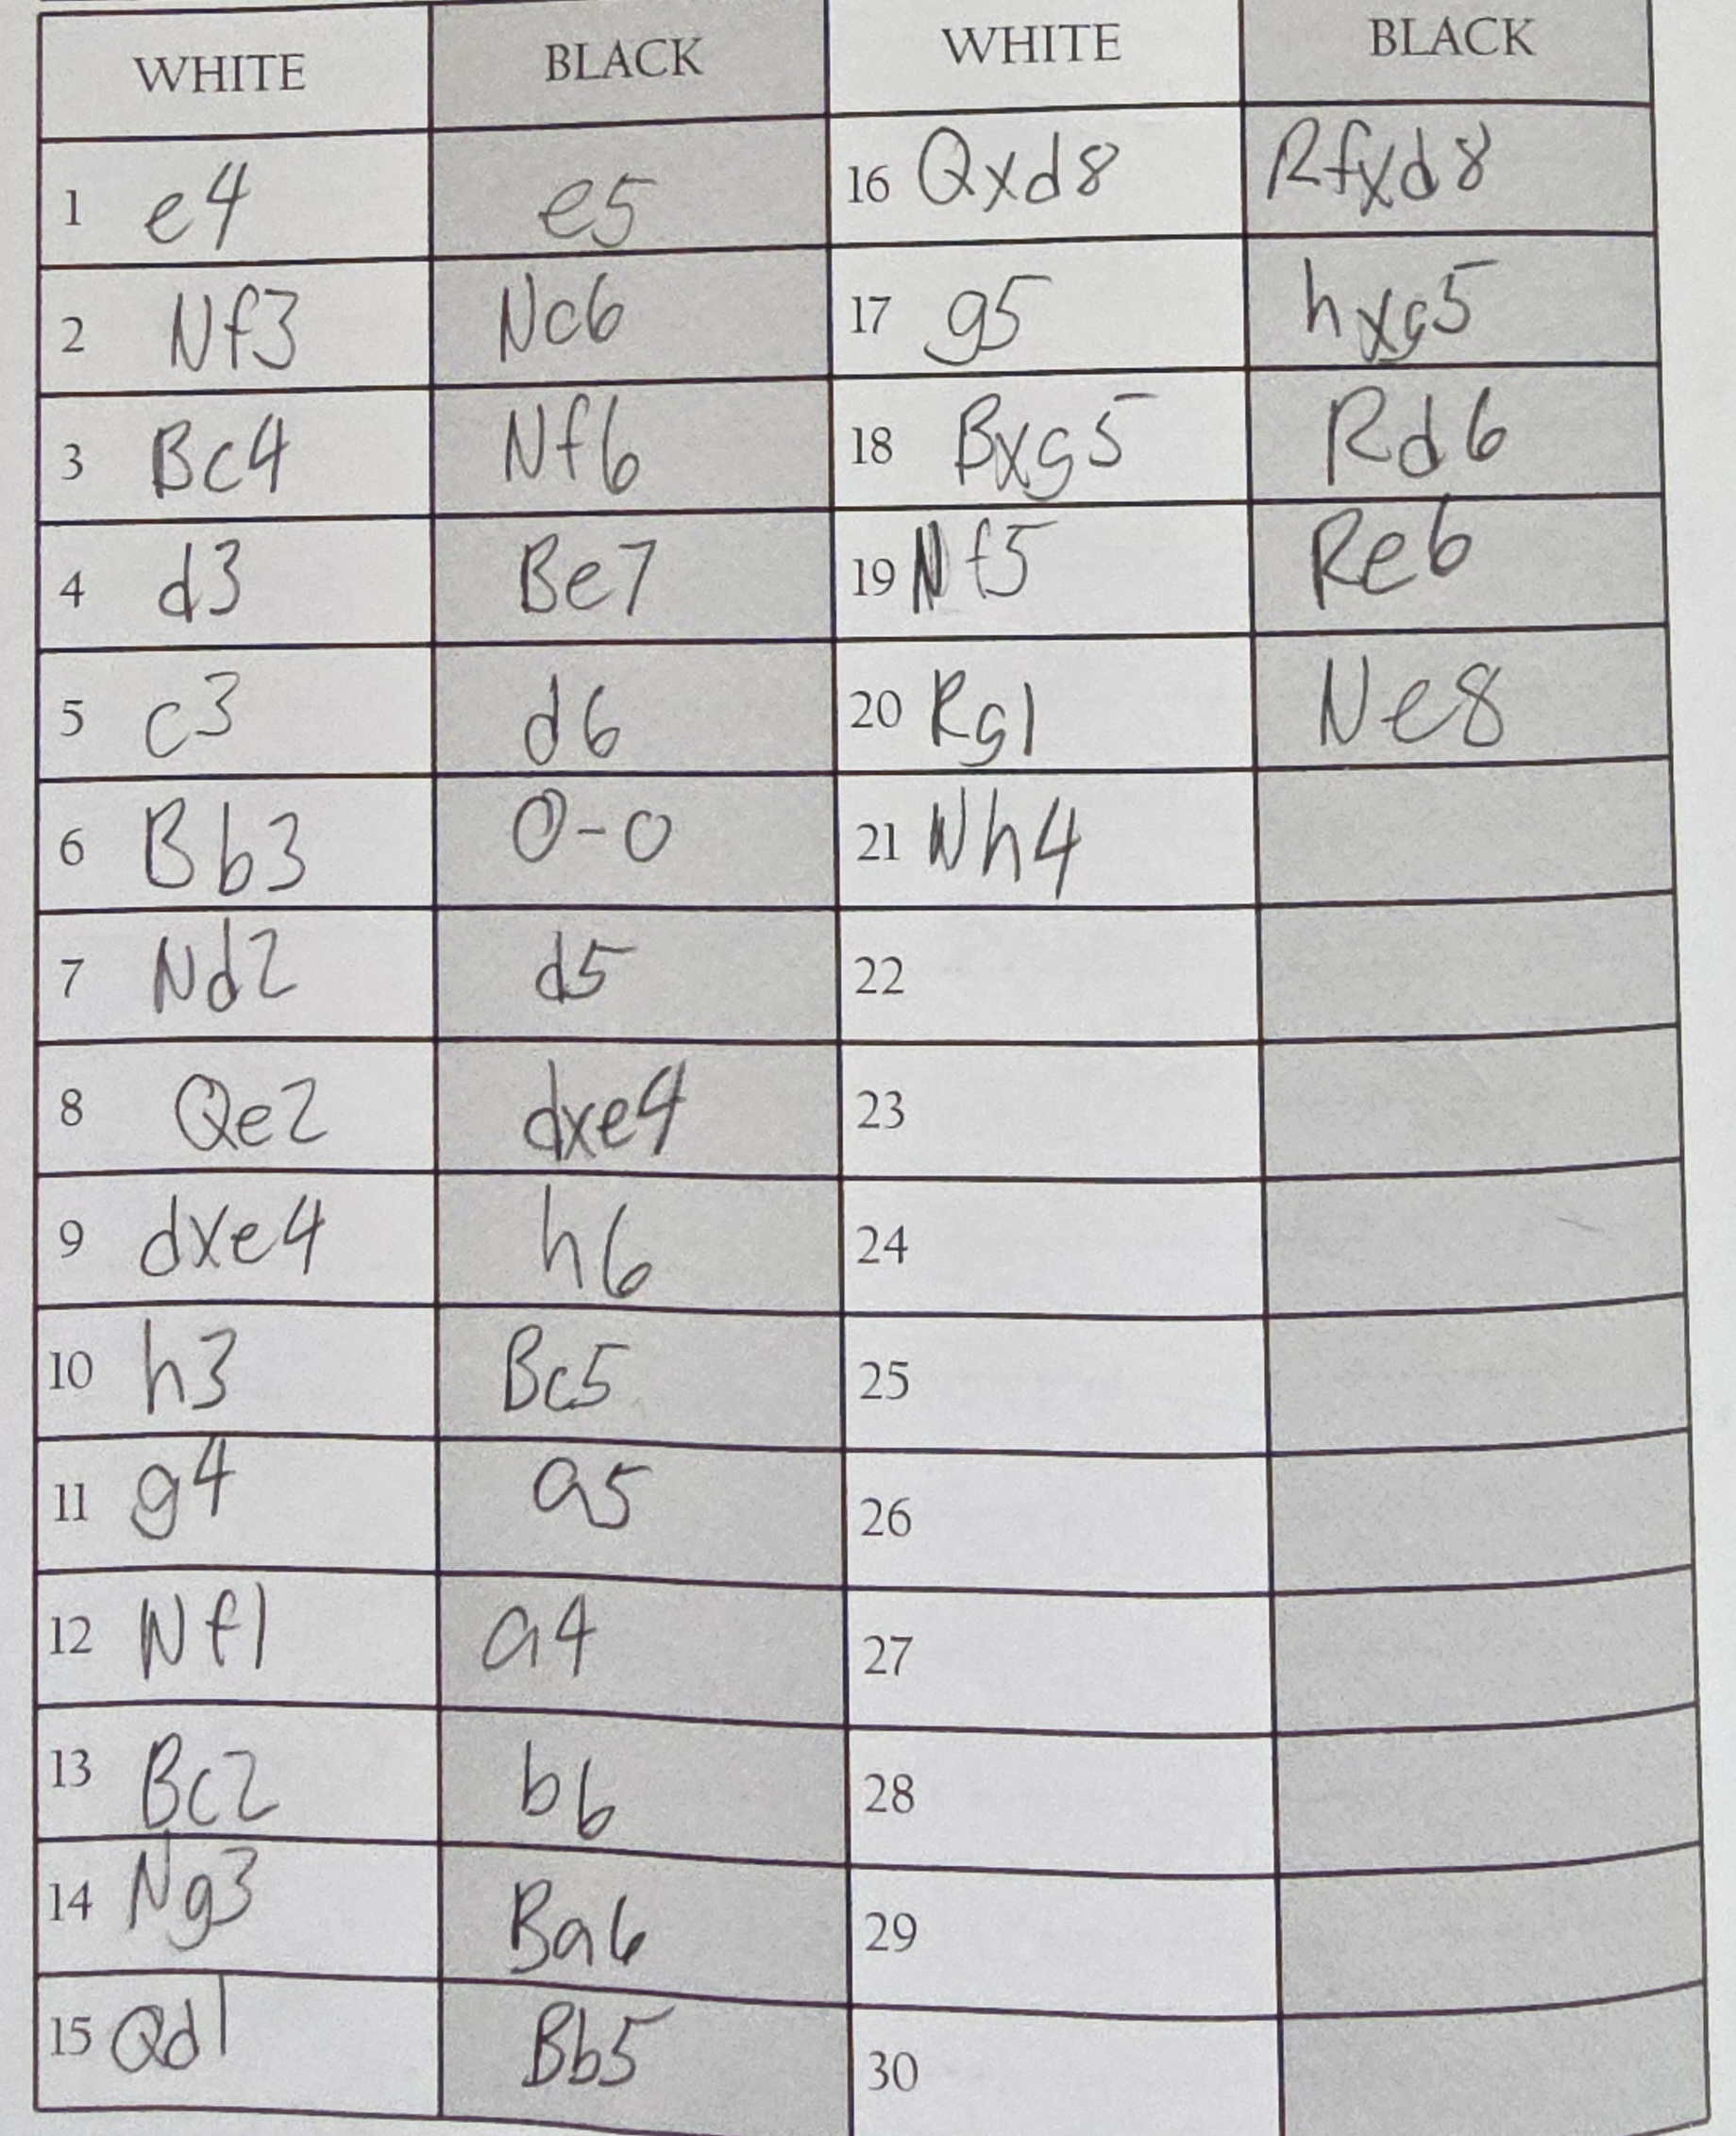 WHITE BLACK WHITE BLACK
1 e4 e5 16 Qxd8 Rfxd8
2 Nf3 Nc6 17 g5 hxg5
3 Bc4 Nf6 18 Bxg5 Rd6
4 d3 Be7 19 Nf5 Re6
5 c3 d6 20 Rg1 Ne8
6 Bb3 0-0 21 Nh4
7 Nd2 d5 22
8 Qe2 dxe4 23
9 dxe4 h6 24
10 h3 Bc5 25
11 g4 a5 26
12 Nf1 a4 27
13 Bc2 b6 28
14 Ng3 Ba6 29
15 Qd1 Bb5 30